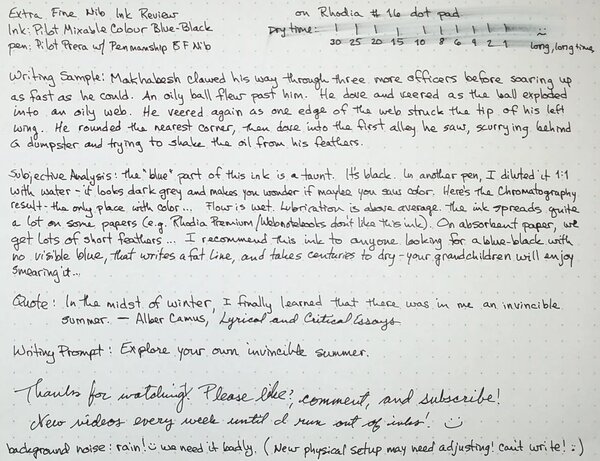 Extra Fine Nib Ink Review on Rhodia #16 dot pad
Ink: Pilot Mixable Colour Blue-Black Dry time:
pen: Pilot Prera w/ Penmanship EF Nib 30 25 20 15 10 8 6 4 2 1 long, long time
Writing Sample: Makhabesh clawed his way through three more officers before soaring up
as fast as he could. An oily ball flew past him. He dove and veered as the ball exploded
into an oily web. He veered again as one edge of the web struck the tip of his left
wing. He rounded the nearest corner, then dove into the first alley he saw, scurrying behind
a dumpster and trying to shake the oil from his feathers.
Subjective Analysis: the "blue" part of this ink is a taunt. It's black. In another pen, I diluted it 1:1
with water - it looks dark grey and makes you wonder if maybe you saw color. Here's the Chromatography
result - the only place with color... Flow is wet. Lubrication is above average. The ink spreads quite
a lot on some papers (e.g. Rhodia Premium/Webnotebooks don't like this ink). On absorbent paper, we
get lots of short feathers... I recommend this ink to anyone looking for a blue-black with
no visible blue, that writes a fat line, and takes centuries to dry - your grandchildren will enjoy
smearing it...
Quote: In the midst of winter, I finally learned that there was in me an invincible
summer. — Alber Camus, Lyrical and Critical Essays
Writing Prompt: Explore your own invincible summer.
Thanks for watching! Please like, comment, and subscribe!
New videos every week until I run out of inks! :)
background noise: rain! :) we need it badly. (New physical setup may need adjusting! Can't write! :)